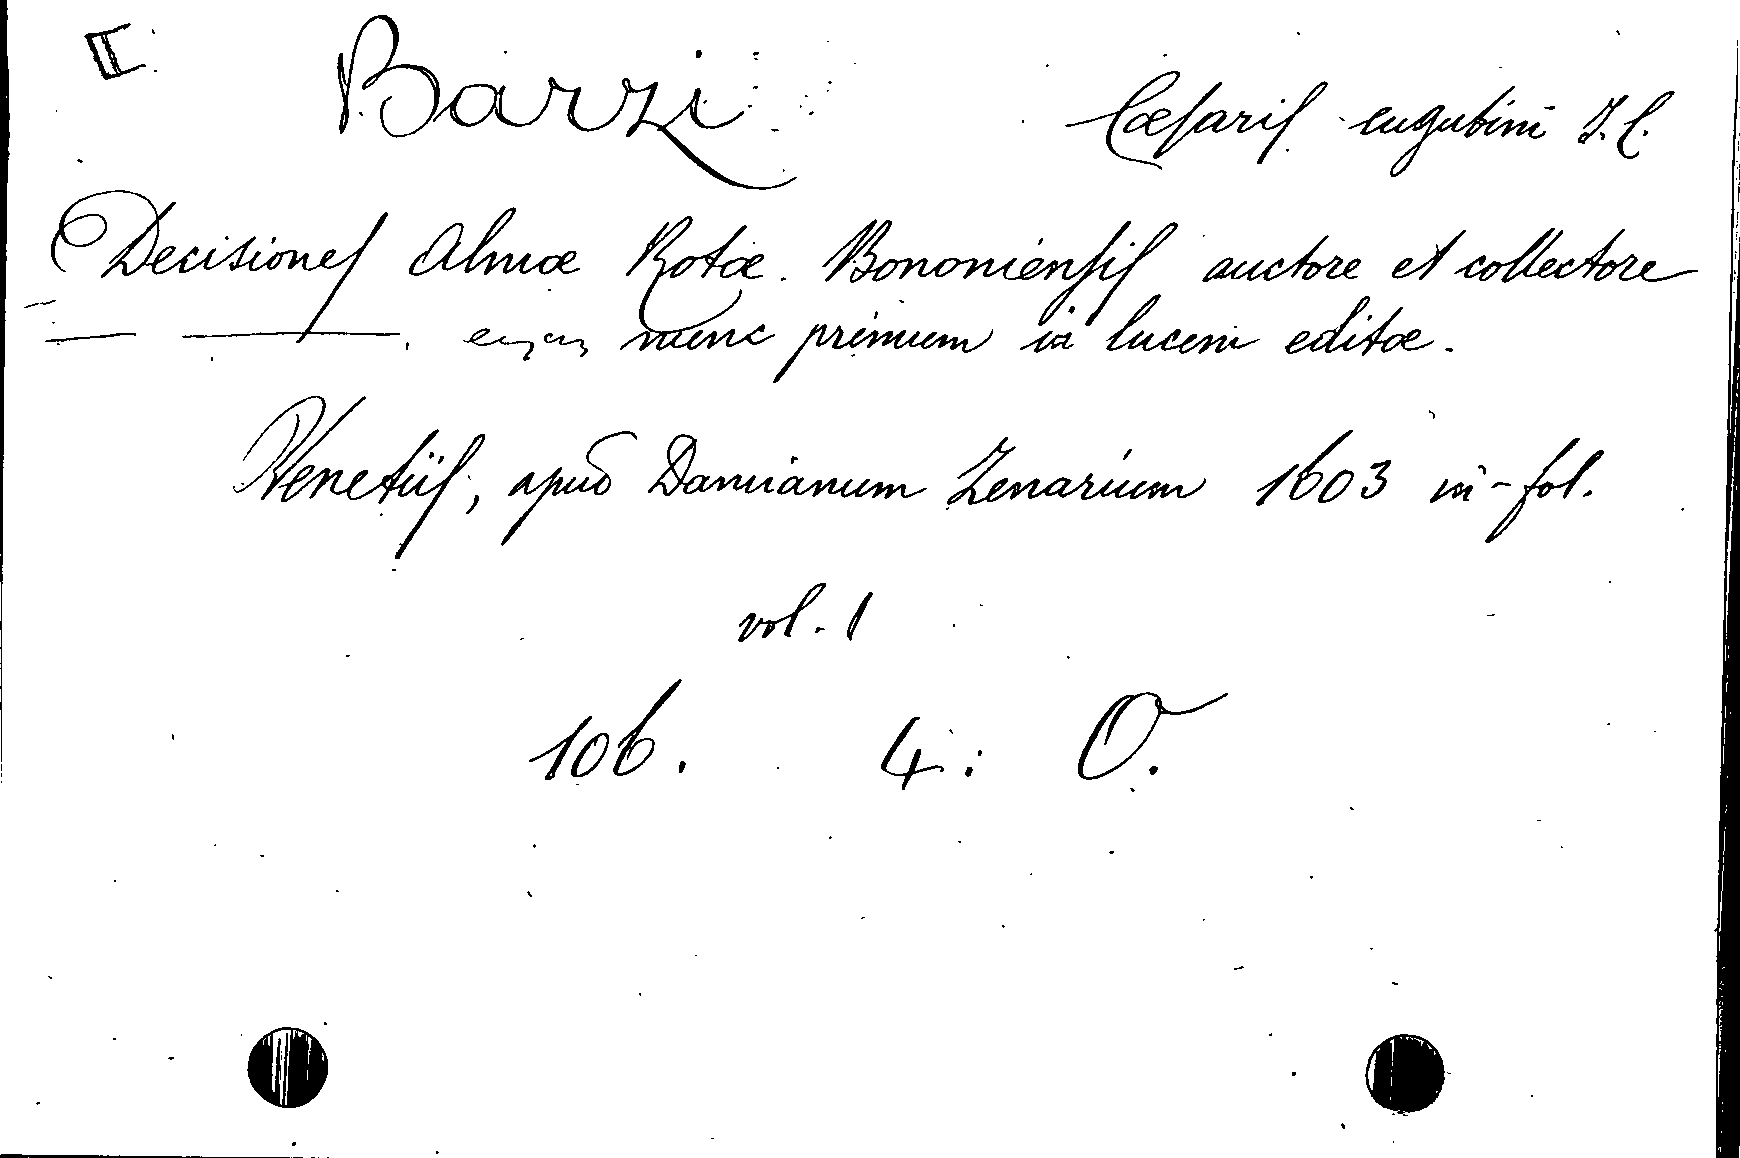 II
Barzi Cæsaris eugubini J. C.
Decisiones Almæ Rotæ Bononiensis auctore et collectore
— —. nunc primum in lucem editæ.
Venetiis, apud Damianum Zenarium 1603 in-fol.
vol. 1
106. 4. O.